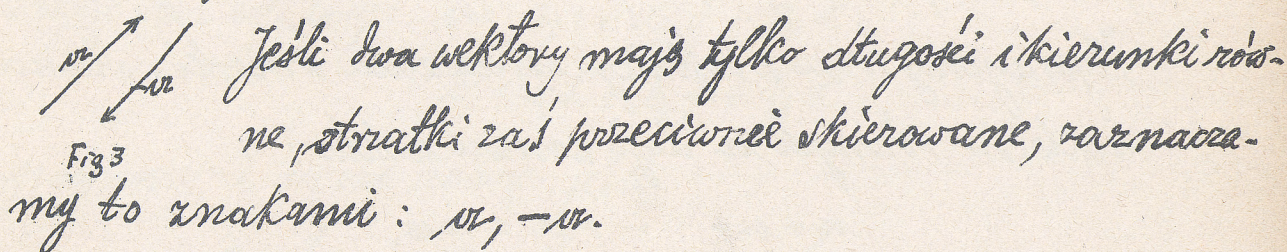 Jeśli dwa wektory mają tylko długości i kierunki rów-
ne, strzałki zaś przeciwnie skierowane, zaznacza-
Fig 3
my to znakami: 𝔞, -𝔞.